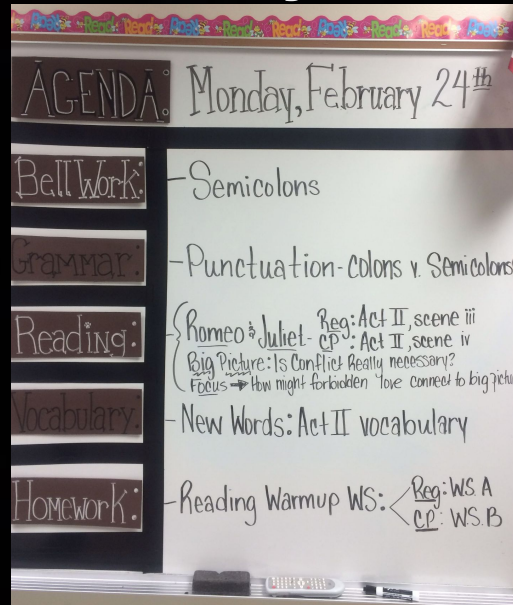 Read Read Read Read Read
AGENDA: Monday, February 24th
Bell Work: - Semicolons
Grammar: - Punctuation - Colons v. Semicolons
Reading: - Romeo & Juliet - Reg: Act II, scene iii
CP: Act II, scene iv
Big Picture: Is Conflict Really necessary?
Focus → How might forbidden love connect to big
Vocabulary: - New Words: Act II vocabulary
Homework: - Reading Warmup WS: Reg: WS. A
CP: W.S. B